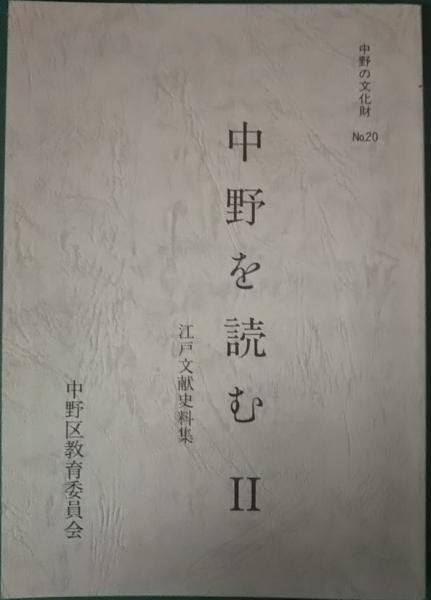 中野の文化財 No.20
中野を読む II
江戸文献史料集
中野区教育委員会